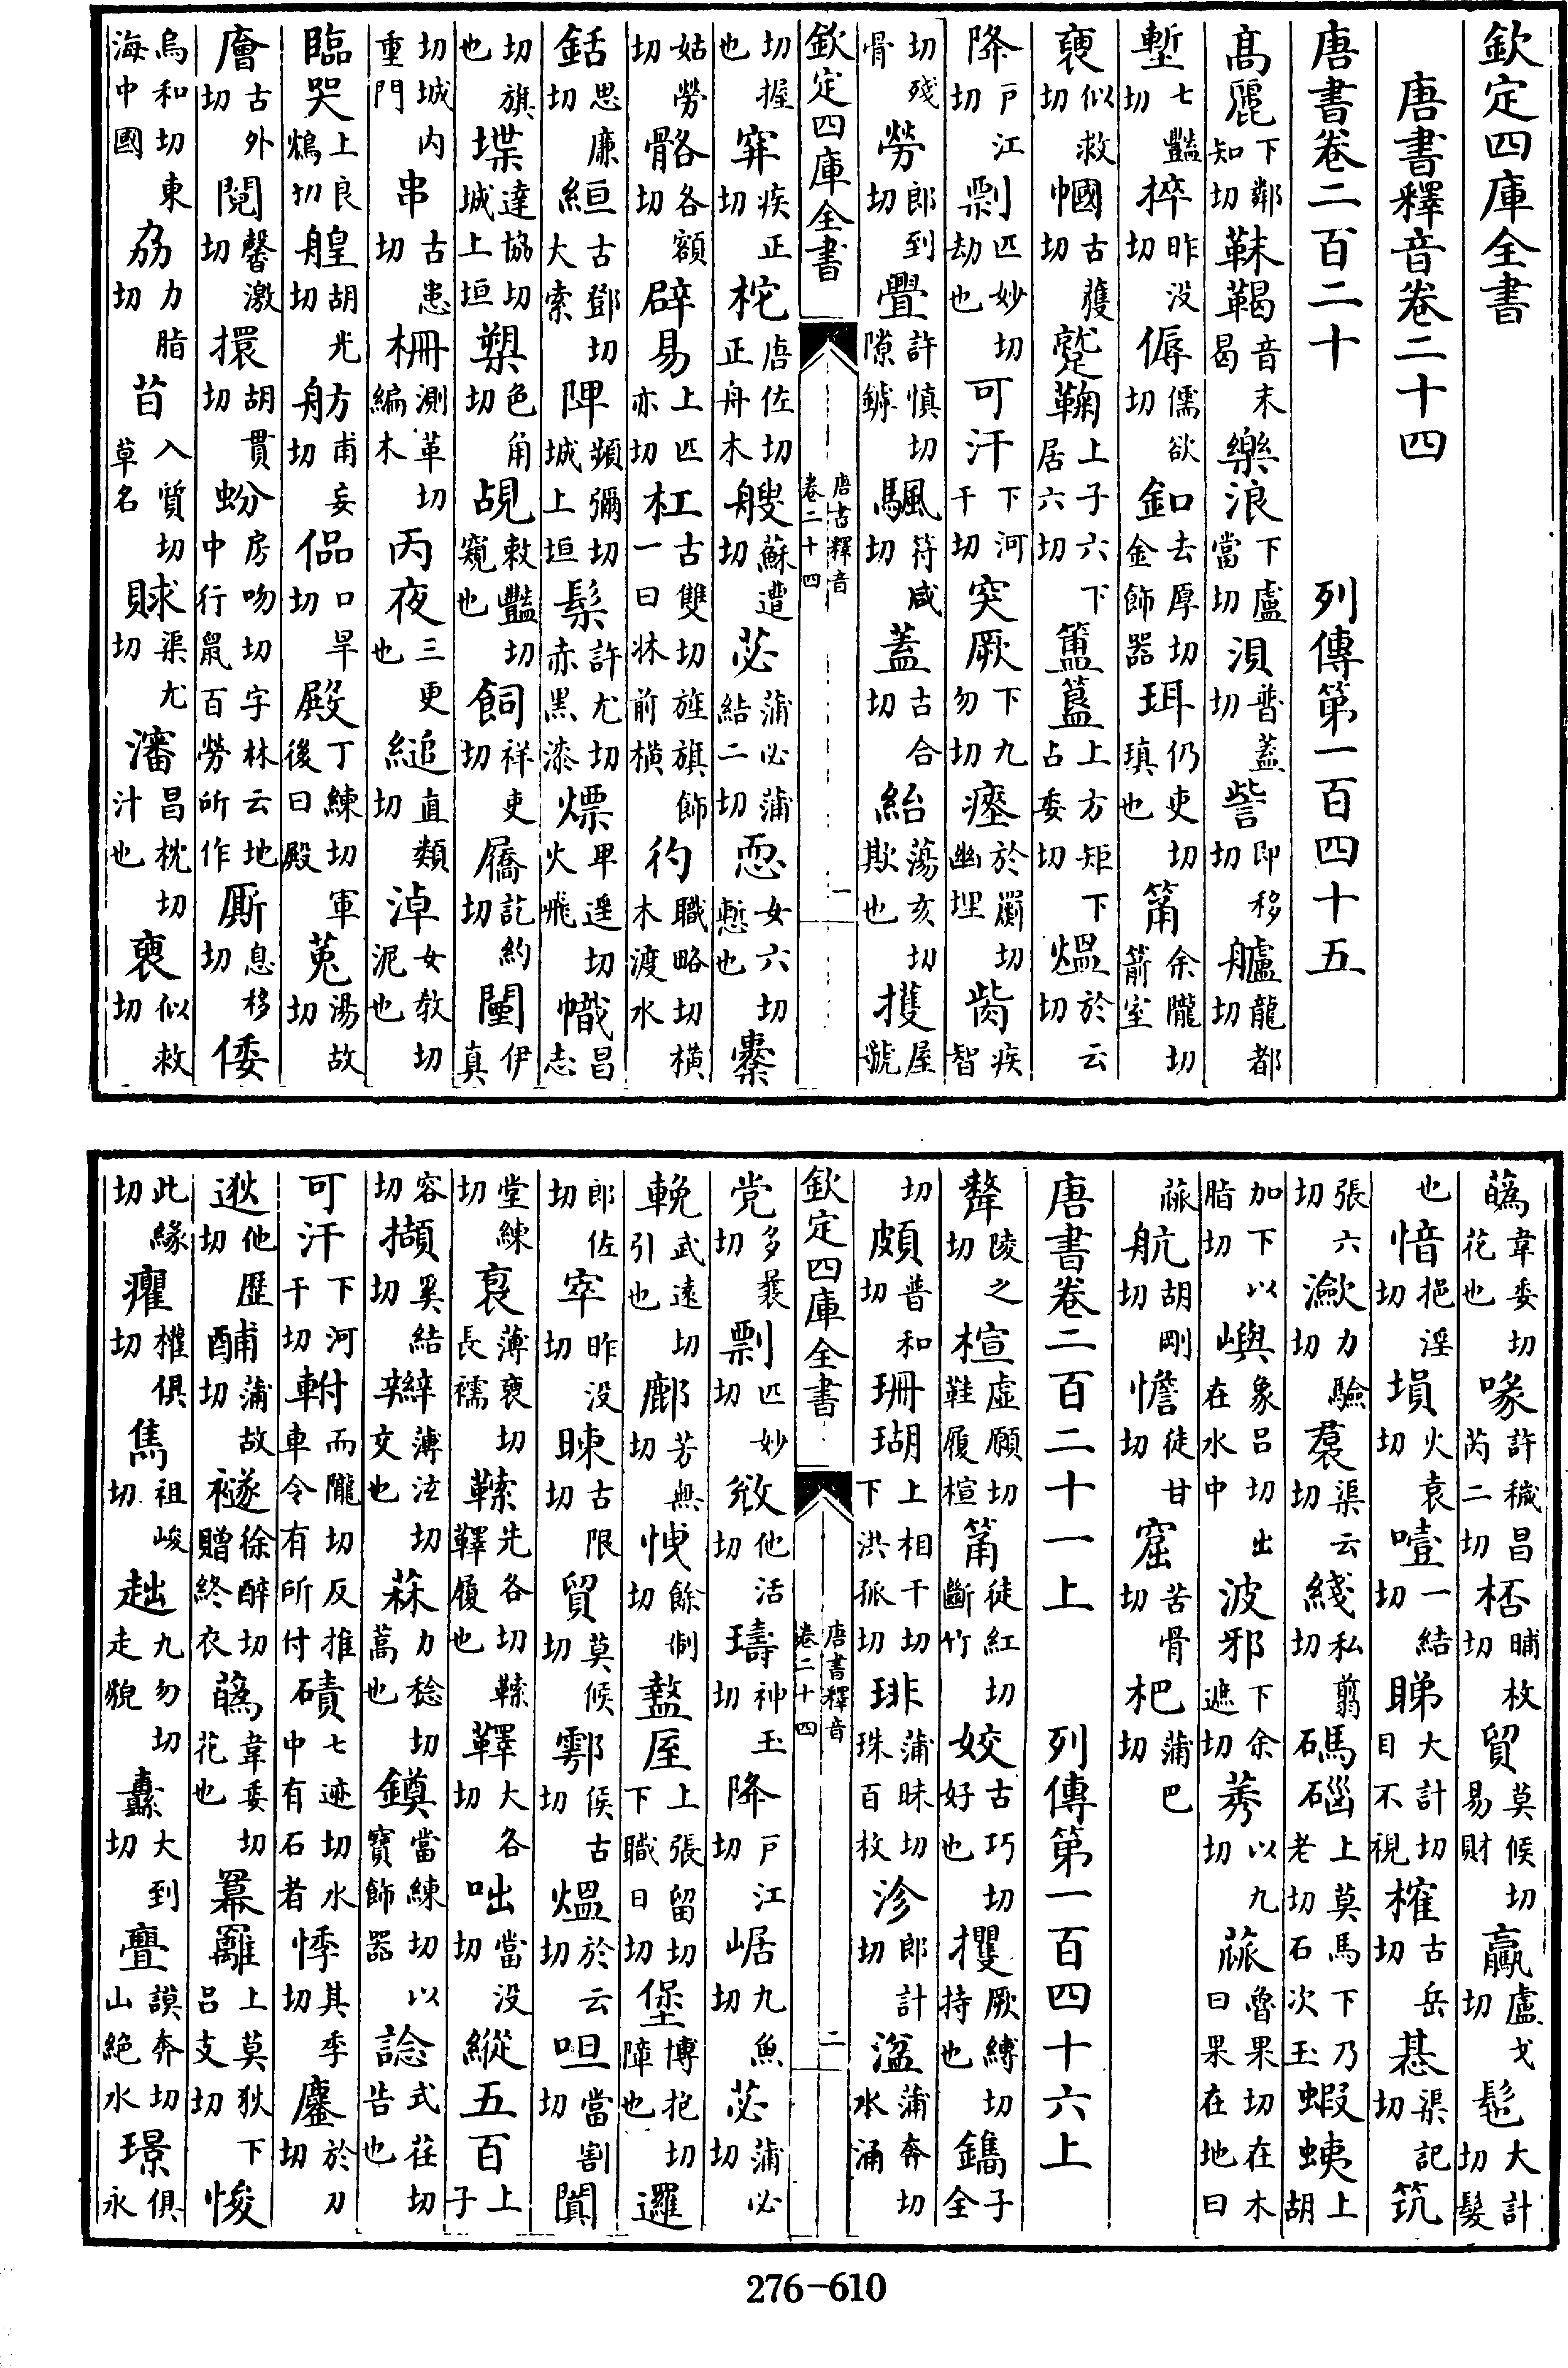 欽定四庫全書
唐書釋音卷二十四
唐書卷二百二十 列傳第一百四十五
髙麗下鄰知切靺鞨音末曷樂浪下盧當切浿普蓋切訾即移切艫龍都切
塹七豔切捽昨没切傉儒欲切釦去厚切金飾器珥仍吏切瑱也筩余隴切箭室
褏似救切幗古䕶切蹵鞠上子六下居六切簠簋上方矩下占委切熅於云切
降戸江切剽匹妙切刼也可汗下河干切突厥下九勿切瘞於罽切幽埋胔疾智
切殘骨勞郎到切釁許慎切隙罅颿符咸切蓋古合切紿蕩亥切欺也擭屋虢
欽定四庫全書 唐書釋音 卷二十四 一
切握也穽疾正切柁唐佐切正舟木艘蘇遭切苾蒲必蒲結二切恧女六切慙也櫜
姑勞切骼各額切辟易上匹亦切杠古雙切一曰牀前橫旌旗飾彴職略切橫木渡水
銛思廉切絙古鄧切大索陴頻彌切城上垣髹許尤切赤黑漆熛卑遥切火飛幟昌志
切旗也堞達協切城上垣槊色角切覘敕豔切窺也飼祥吏切屩訖約切闉伊真
切城内重門串古患切柵測革切編木丙夜三更也縋直類切淖女教切泥也
臨哭上良鴆切艎胡光切舫甫妄切偘口旱切殿丁練切軍後曰殿菟湯故切
廥古外切䦧馨激切擐胡貫切蚡房吻切字林云地中行鼠百勞所作厮息移切倭
烏和切東海中國劦力脂切苩入質切草名賕渠尤切瀋昌枕切汁也褏似救切
蘤韋委切花也喙許穢昌芮二切桮晡枚切貿莫候切易財羸盧戈切髢大計切髮
也愔挹淫切塤火袁切噎一結切睇大計切目不視榷古岳切惎渠記切筑
張六切瀲力驗切裠渠云切綫私翦切碼碯上莫馬下乃老切石次玉蝦蛦上胡
加下以脂切嶼象吕切出在水中波邪下余遮切莠以九切蓏魯果切在木曰果在地曰
蓏航胡剛切憺徒甘切窟苦骨切杷蒲巴切
唐書卷二百二十一上 列傳第一百四十六上
犛陵之切楦虛願切鞋履楦筩徒紅切斷竹姣古巧切好也攫厥縛切持也鐫子全
切頗普和切珊瑚上相干切下洪孤切琲蒲昧切珠百枚沴郎計切湓蒲奔切水涌
欽定四庫全書 唐書釋音 卷二十四 二
党多曩切剽匹妙切敓他活切璹神玉切降戸江切崌九魚切苾蒲必切
輓武遠切引也鄜芳無切恞餘制切盩厔上張留切下職日切堡博抱切障也邏
郎佐切窣昨没切暕古限切貿莫候切鄠侯古切熅於云切呾當割切闐
堂練切裒薄褒切長襦䩱先各切䩱鞾履也鞾大各切咄當没切縱五百上子
容切擷奚結切辮薄泫切交也菻力稔切蒿也鐏當練切以寶飾器諗式荏切告也
可汗下河干切軵而隴切反推車令有所付磧七迹切水中有石者悸其季切鏖於刀切
逖他歷切酺蒲故切襚徐醉切贈終衣蘤韋委切花也羃䍦上莫狄下吕支切悛
此緣切癯權俱切雋祖峻切趉九勿切走貌纛大到切亹謨奔切山絶水璟俱永
276-610